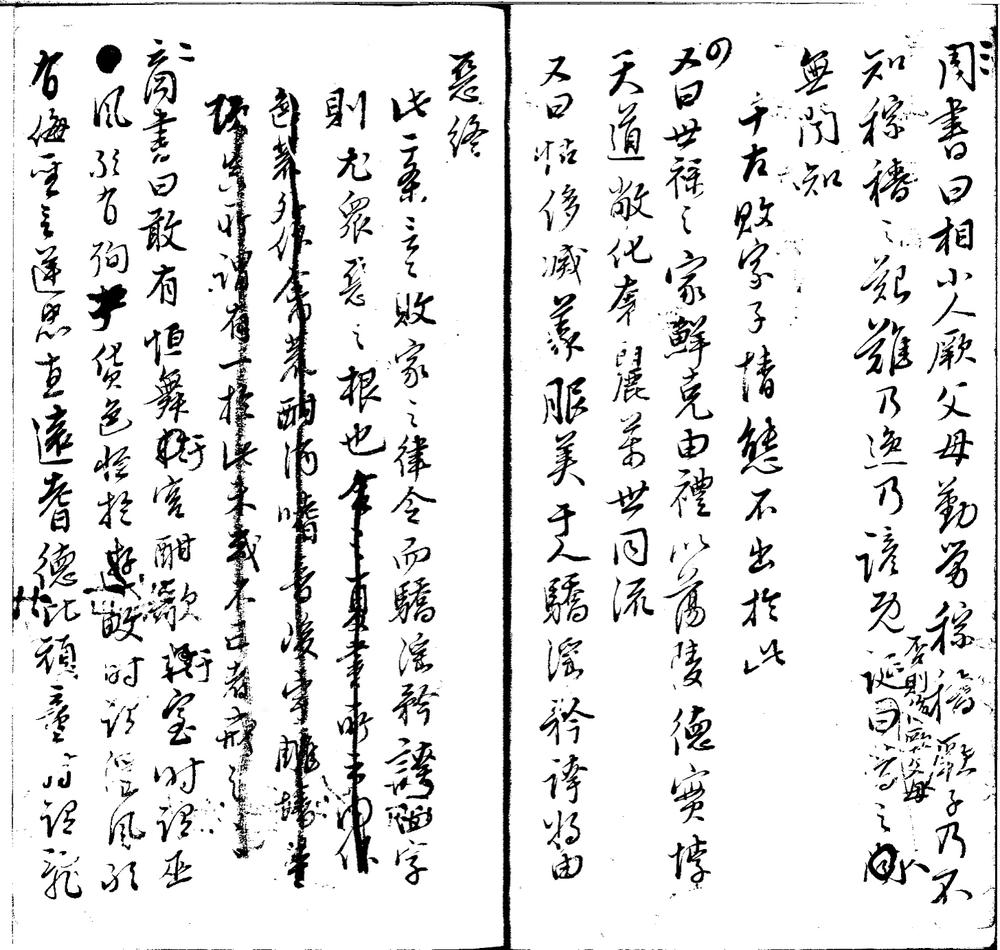 周書曰相小人厥父母勤勞稼穡厥子乃不
知稼穡之艱難乃逸乃諺既誕否則侮厥父母曰昔之人
無聞知
千古敗家子情態不出於此
又曰世祿之家鮮克由禮以蕩陵德實悖
天道敝化奢麗萬世同流
又曰怙侈滅義服美于人驕淫矜侉將由
惡終
此二条言敗家之律令而驕淫矜誇四字
則尤衆惡之根也今之夏書所云內作
色荒外作禽荒酣酒嗜音峻宇雕墻
所謂有一於此未或不亡者
商書曰敢有恒舞于宮酣歌于室時謂巫
風敢有殉于貨色恒於遊畋時謂淫風敢
有侮聖言逆忠直遠耆德比頑童時謂亂